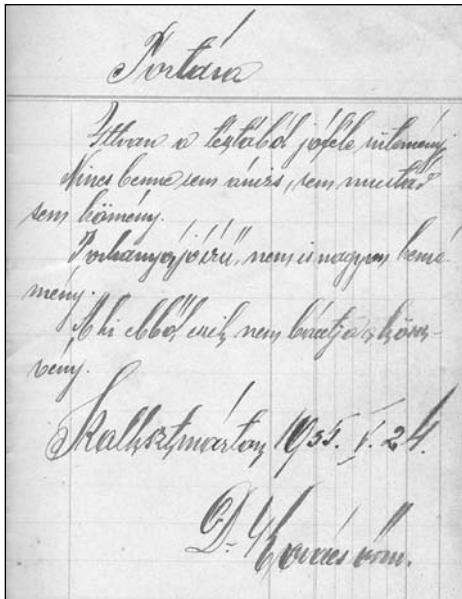 Tortára
Itt van a tésztából jóféle sütemény,
Nincs benne sem ánizs, sem mustár
sem kömény.
Porhanyó, jóízű, nem is nagyon kemé-
mény.
A ki ebből eszik, nem bántja a kösz-
vény.
1935. V. 24.
Dr. Kovács